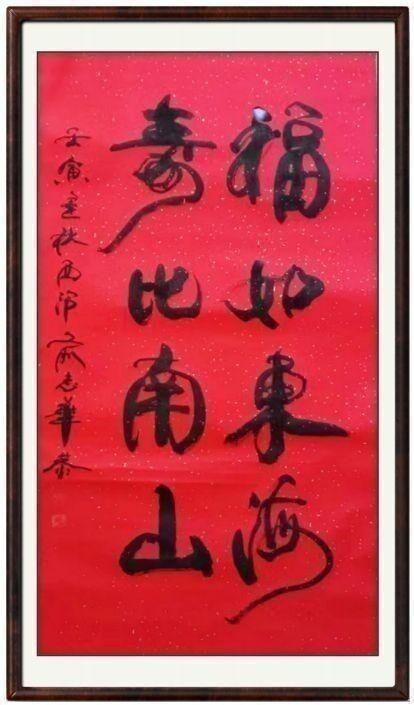 福如東海
壽比南山
壬寅孟秋西泠俞志華恭